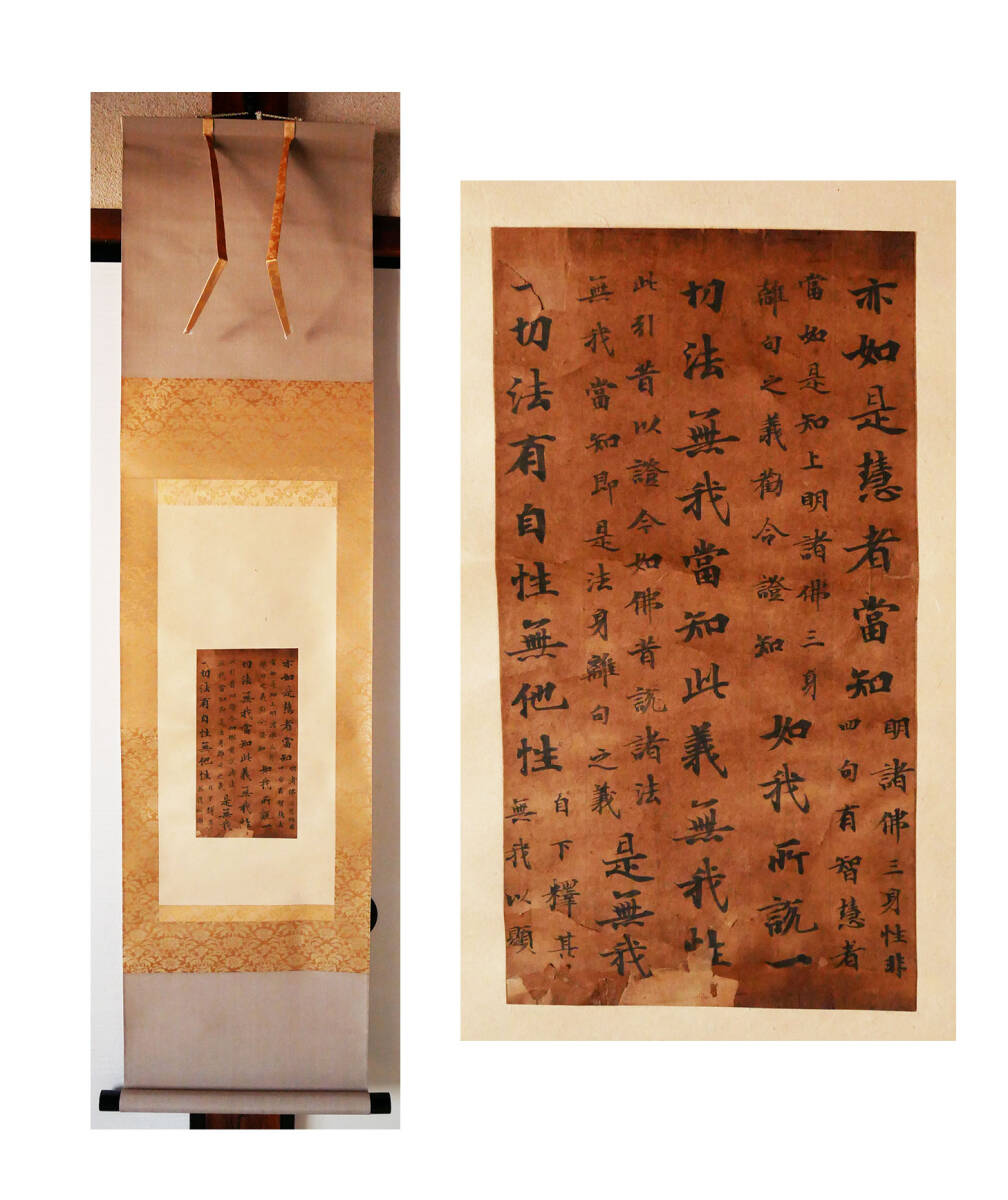 亦如是慧者當知
明諸佛三身性非
四句有智慧者
當如是知上明諸佛三身
離句之義勸令證知
如我所説一
切法無我當知此義無我性
此引昔以證今如佛昔説諸法
無我當知即是法身離句之義
是無我
一切法有自性無他性
自下釋其
無我以顯